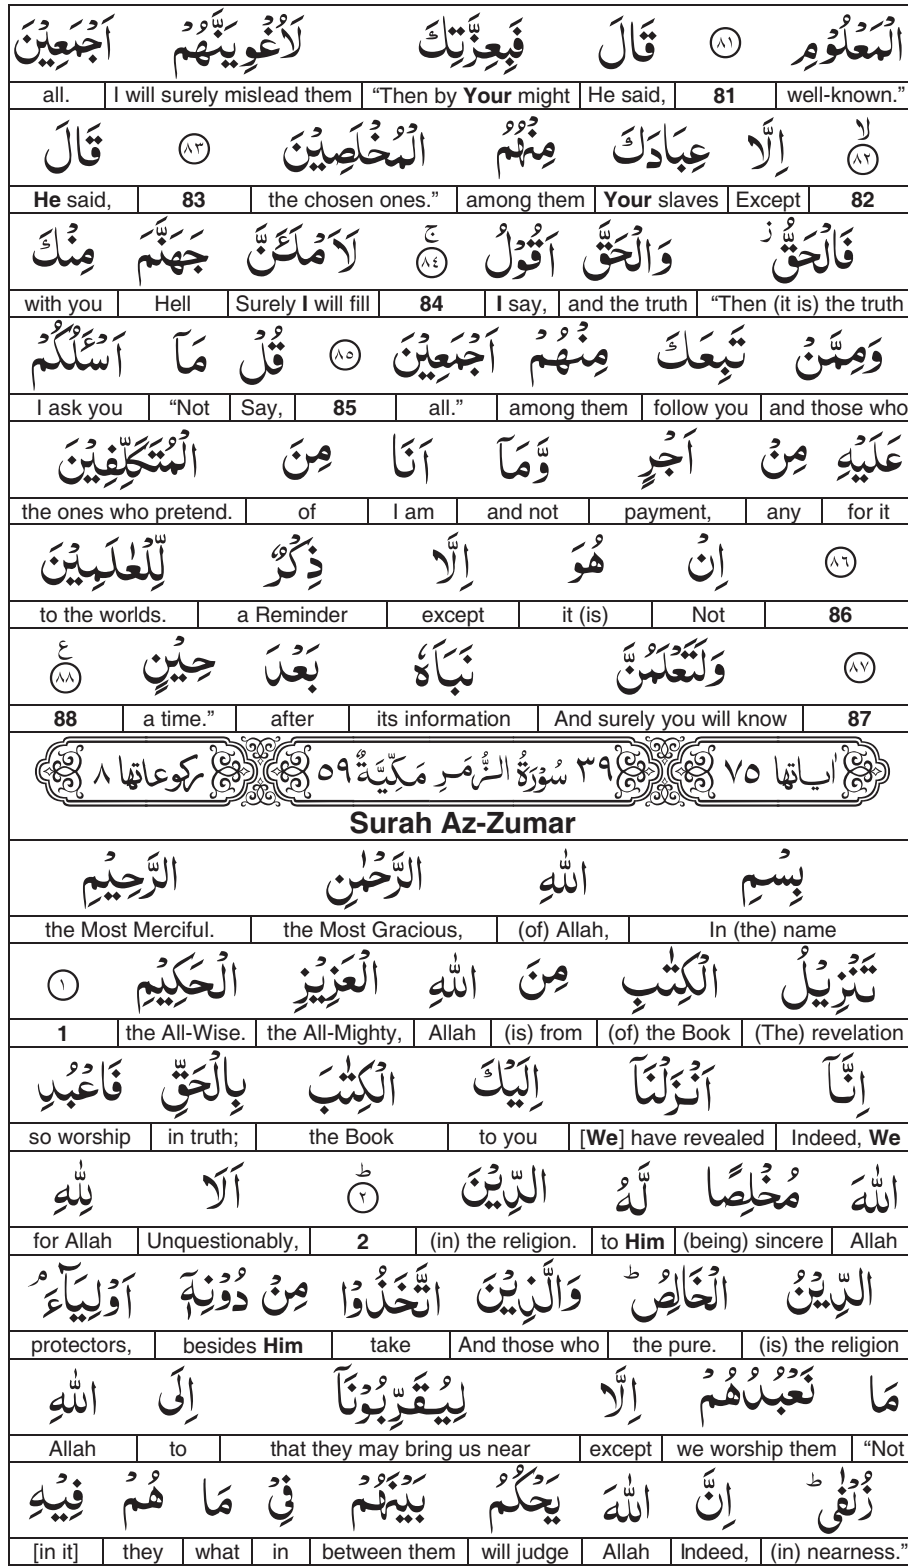 الْمَعْلُوْمِ ﴿٨١﴾ قَالَ فَبِعِزَّتِكَ لَاُغْوِيَنَّهُمْ اَجْمَعِيْنَ
well-known.” 81 He said, “Then by Your might I will surely mislead them all.
﴿٨٢﴾ۙ اِلَّا عِبَادَكَ مِنْهُمُ الْمُخْلَصِيْنَ ﴿٨٣﴾ قَالَ
82 Except Your slaves among them the chosen ones.” 83 He said,
فَالْحَقُّ ز وَالْحَقَّ اَقُوْلُ ﴿٨٤﴾ۚ لَاَمْلَـَٔنَّ جَهَنَّمَ مِنْكَ
“Then (it is) the truth and the truth I say, 84 Surely I will fill Hell with you
وَمِمَّنْ تَبِعَكَ مِنْهُمْ اَجْمَعِيْنَ ﴿٨٥﴾ قُلْ مَآ اَسْـَٔلُكُمْ
and those who follow you among them all.” 85 Say, “Not I ask you
عَلَيْهِ مِنْ اَجْرٍ وَّمَآ اَنَا مِنَ الْمُتَكَلِّفِيْنَ
for it any payment, and not I am of the ones who pretend.
﴿٨٦﴾ اِنْ هُوَ اِلَّا ذِكْرٌ لِّلْعٰلَمِيْنَ
86 Not it (is) except a Reminder to the worlds.
﴿٨٧﴾ وَلَتَعْلَمُنَّ نَبَاَهٗ بَعْدَ حِيْنٍ ﴿٨٨﴾ ع
87 And surely you will know its information after a time.” 88
اٰیاتها ٧٥ ٣٩ سُوْرَةُ الزُّمَرِ مَكِّيَّةٌ ٥٩ ركوعاتها ٨
Surah Az-Zumar
بِسْمِ اللّٰهِ الرَّحْمٰنِ الرَّحِيْمِ
In (the) name (of) Allah, the Most Gracious, the Most Merciful.
تَنْزِيْلُ الْكِتٰبِ مِنَ اللّٰهِ الْعَزِيْزِ الْحَكِيْمِ ﴿١﴾
(The) revelation (of) the Book (is) from Allah the All-Mighty, the All-Wise. 1
اِنَّآ اَنْزَلْنَآ اِلَيْكَ الْكِتٰبَ بِالْحَقِّ فَاعْبُدِ
Indeed, We [We] have revealed to you the Book in truth; so worship
اللّٰهَ مُخْلِصًا لَّهُ الدِّيْنَ ﴿٢﴾ؕ اَلَا لِلّٰهِ
Allah (being) sincere to Him (in) the religion. 2 Unquestionably, for Allah
الدِّيْنُ الْخَالِصُ ؕ وَالَّذِيْنَ اتَّخَذُوْا مِنْ دُوْنِهٖٓ اَوْلِيَآءَ ۘ
(is) the religion the pure. And those who take besides Him protectors,
مَا نَعْبُدُهُمْ اِلَّا لِيُقَرِّبُوْنَآ اِلَى اللّٰهِ
“Not we worship them except that they may bring us near to Allah
زُلْفٰى ؕ اِنَّ اللّٰهَ يَحْكُمُ بَيْنَهُمْ فِيْ مَا هُمْ فِيْهِ
(in) nearness.” Indeed, Allah will judge between them in what they [in it]